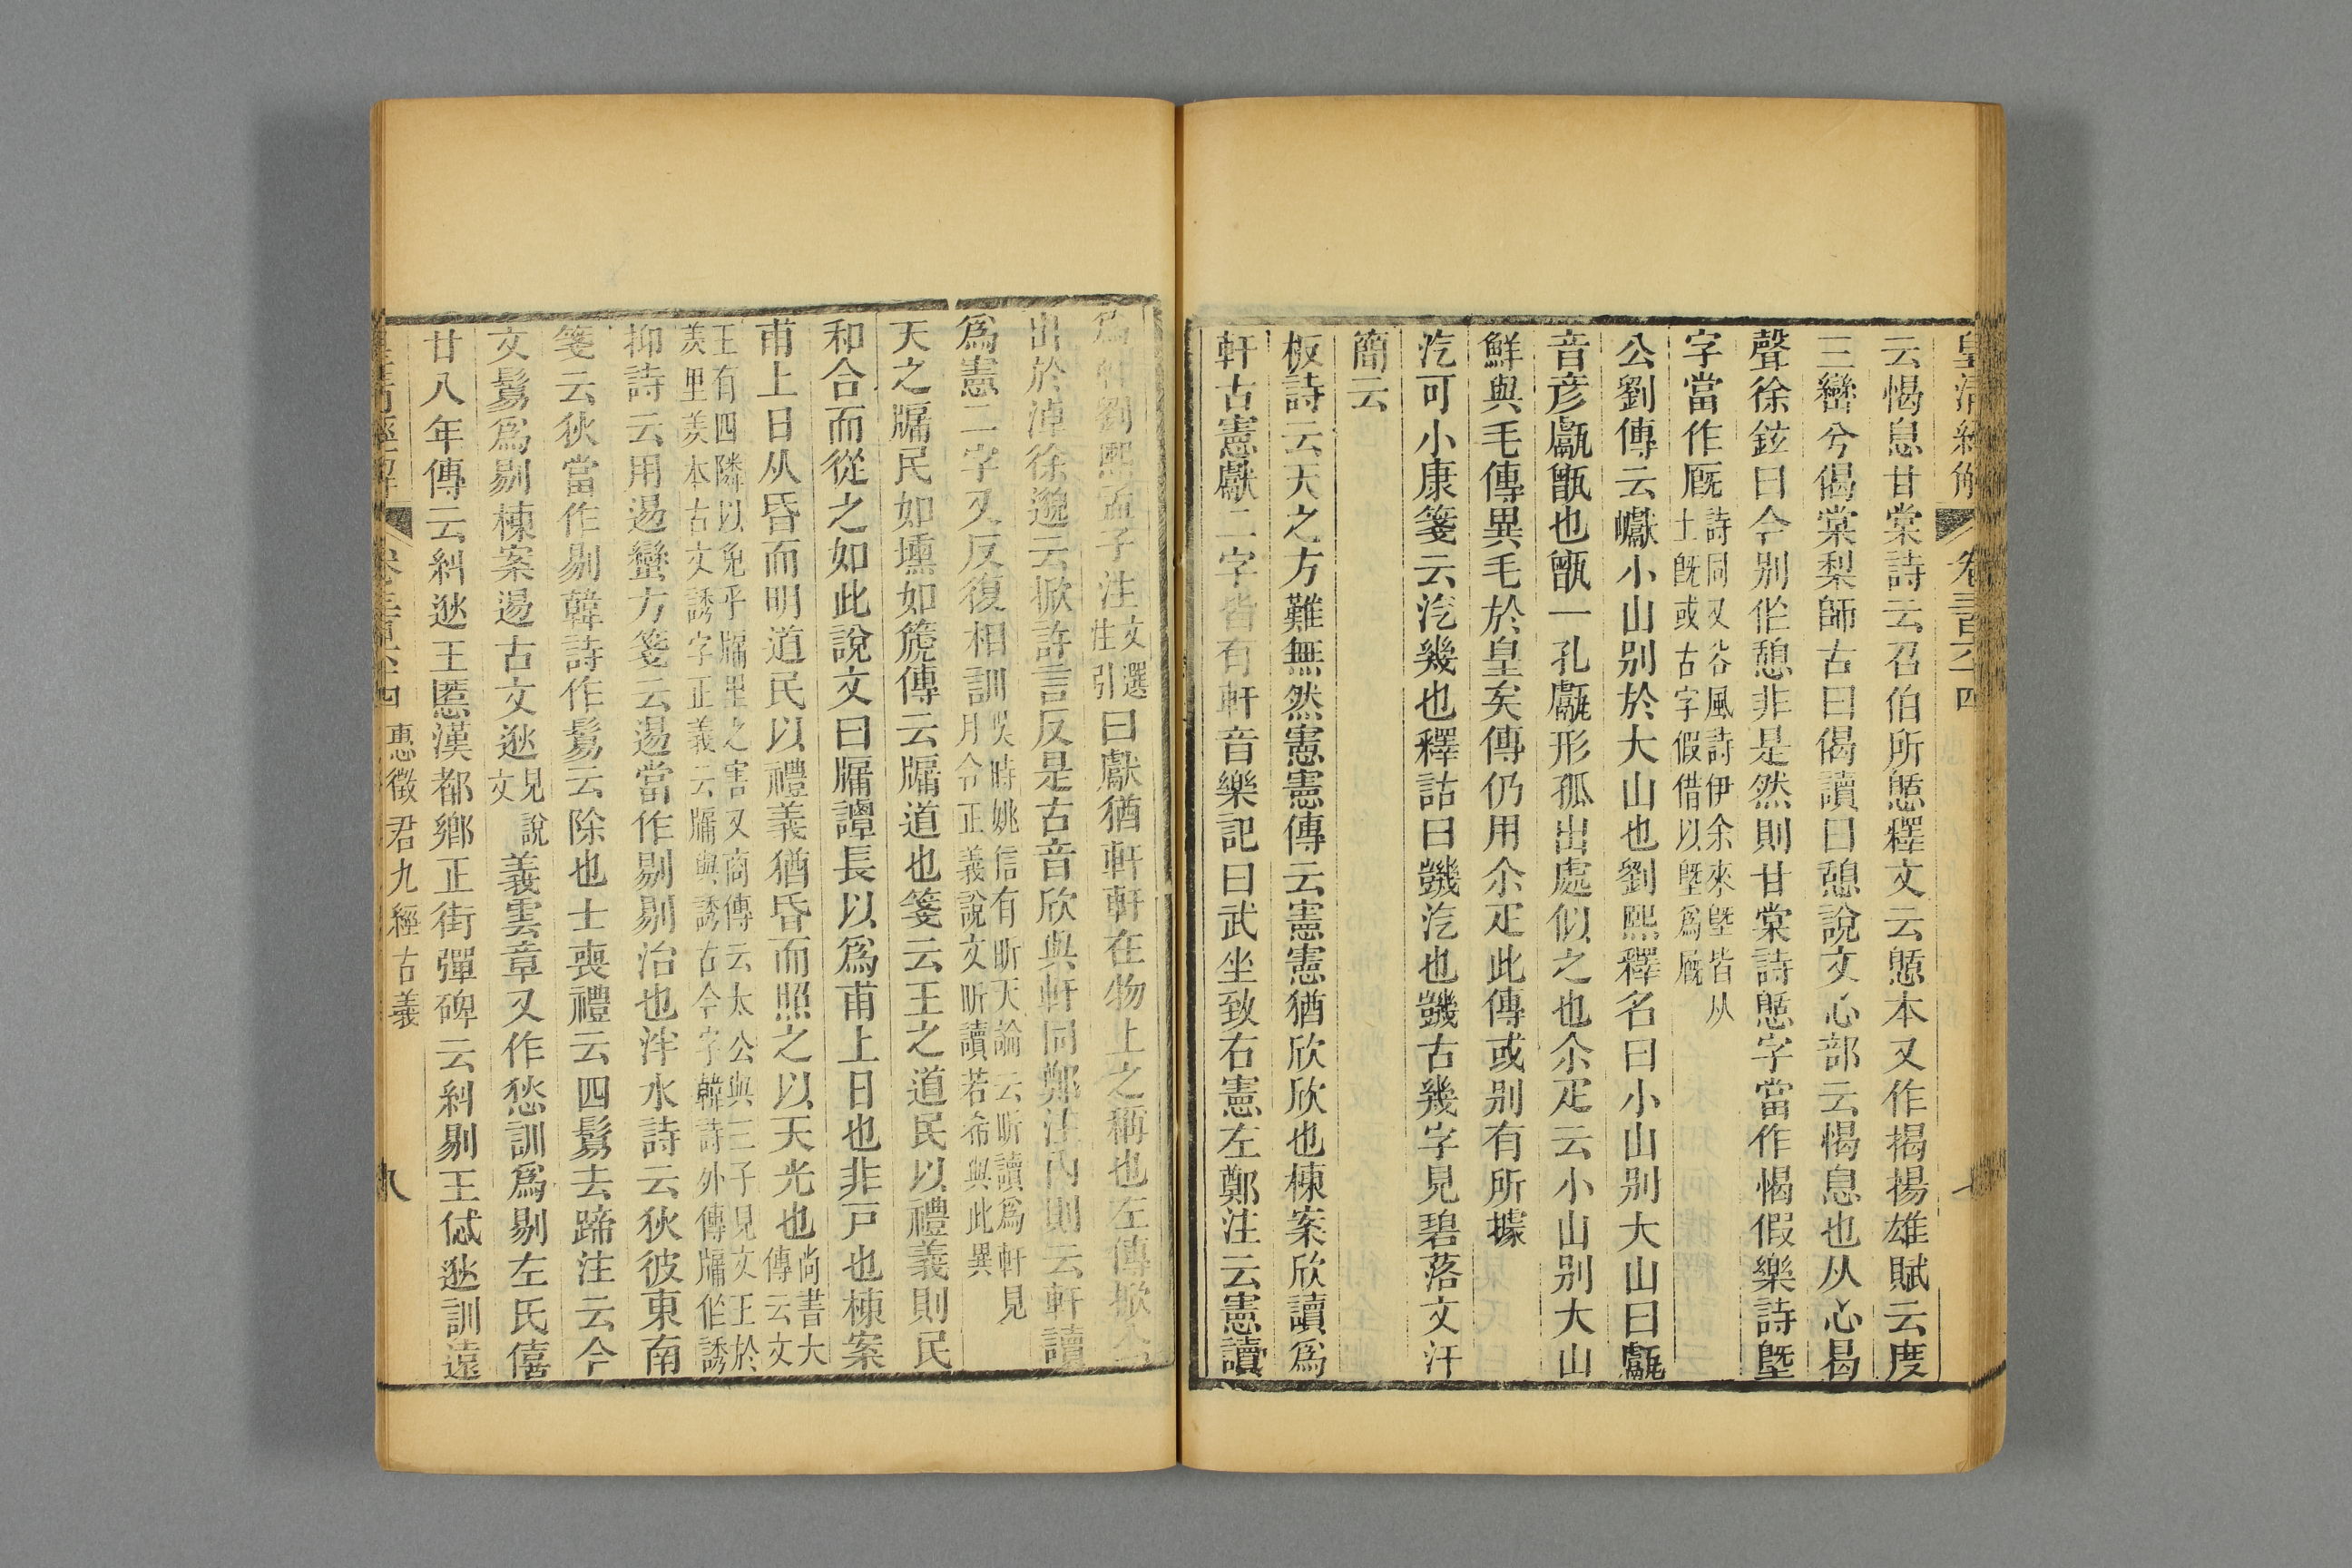 皇清經解 卷三百六十四
云愒息甘棠詩云召伯所憩釋文云憩本又作揭揚雄賦云度
三巒兮偈棠梨師古曰偈讀曰憩說文心部云愒息也从心曷
聲徐鉉曰今别作憩非是然則甘棠詩憩字當作愒假樂詩墍
字當作厩詩同又谷風詩伊余來墍皆从土旣或古字假借以墍爲厩
公劉傳云巘小山别於大山也劉熙釋名曰小山别大山曰甗
音彥甗甑也甑一孔甗形孤出處似之也尒疋云小山别大山
鮮與毛傳異毛於皇矣傳仍用尒疋此傳或别有所據
汔可小康箋云汔幾也釋詁曰譏汔也譏古幾字見碧落文汗
簡云
板詩云天之方難無然憲憲傳云憲憲猶欣欣也棟案欣讀爲
軒古憲獻二字皆有軒音樂記曰武坐致右憲左鄭注云憲讀
爲軒劉熙孟子注文選注引曰獻猶軒軒在物上之稱也左傳掀公
出於淖徐邈云掀許言反是古音欣與軒同鄭注內則云軒讀
爲憲二字又反復相訓吳時姚信有昕天論云昕讀爲軒見月令正義說文昕讀若希與此異
天之牖民如壎如篪傳云牖道也箋云王之道民以禮義則民
和合而從之如此說文曰牖譚長以爲甫上日也非戸也棟案
甫上日从昏而明道民以禮義猶昏而照之以天光也尚書大傳云文
王有四隣以免乎牖里之害又商傳云太公與三子見文王於羑里羑本古文誘字正義云牖與誘古今字韓詩外傳牖作誘
抑詩云用逷蠻方箋云逷當作剔剔治也泮水詩云狄彼東南
箋云狄當作剔韓詩作鬄云除也士喪禮云四鬄去蹄注云今
文鬄爲剔棟案逷古文逖見說文義雲章又作悐訓爲剔左氏僖
廿八年傳云糾逖王慝漢都鄉正街彈碑云糾剔王忒逖訓遠
皇清經解 卷三百六十四 惠徵君九經古義 八